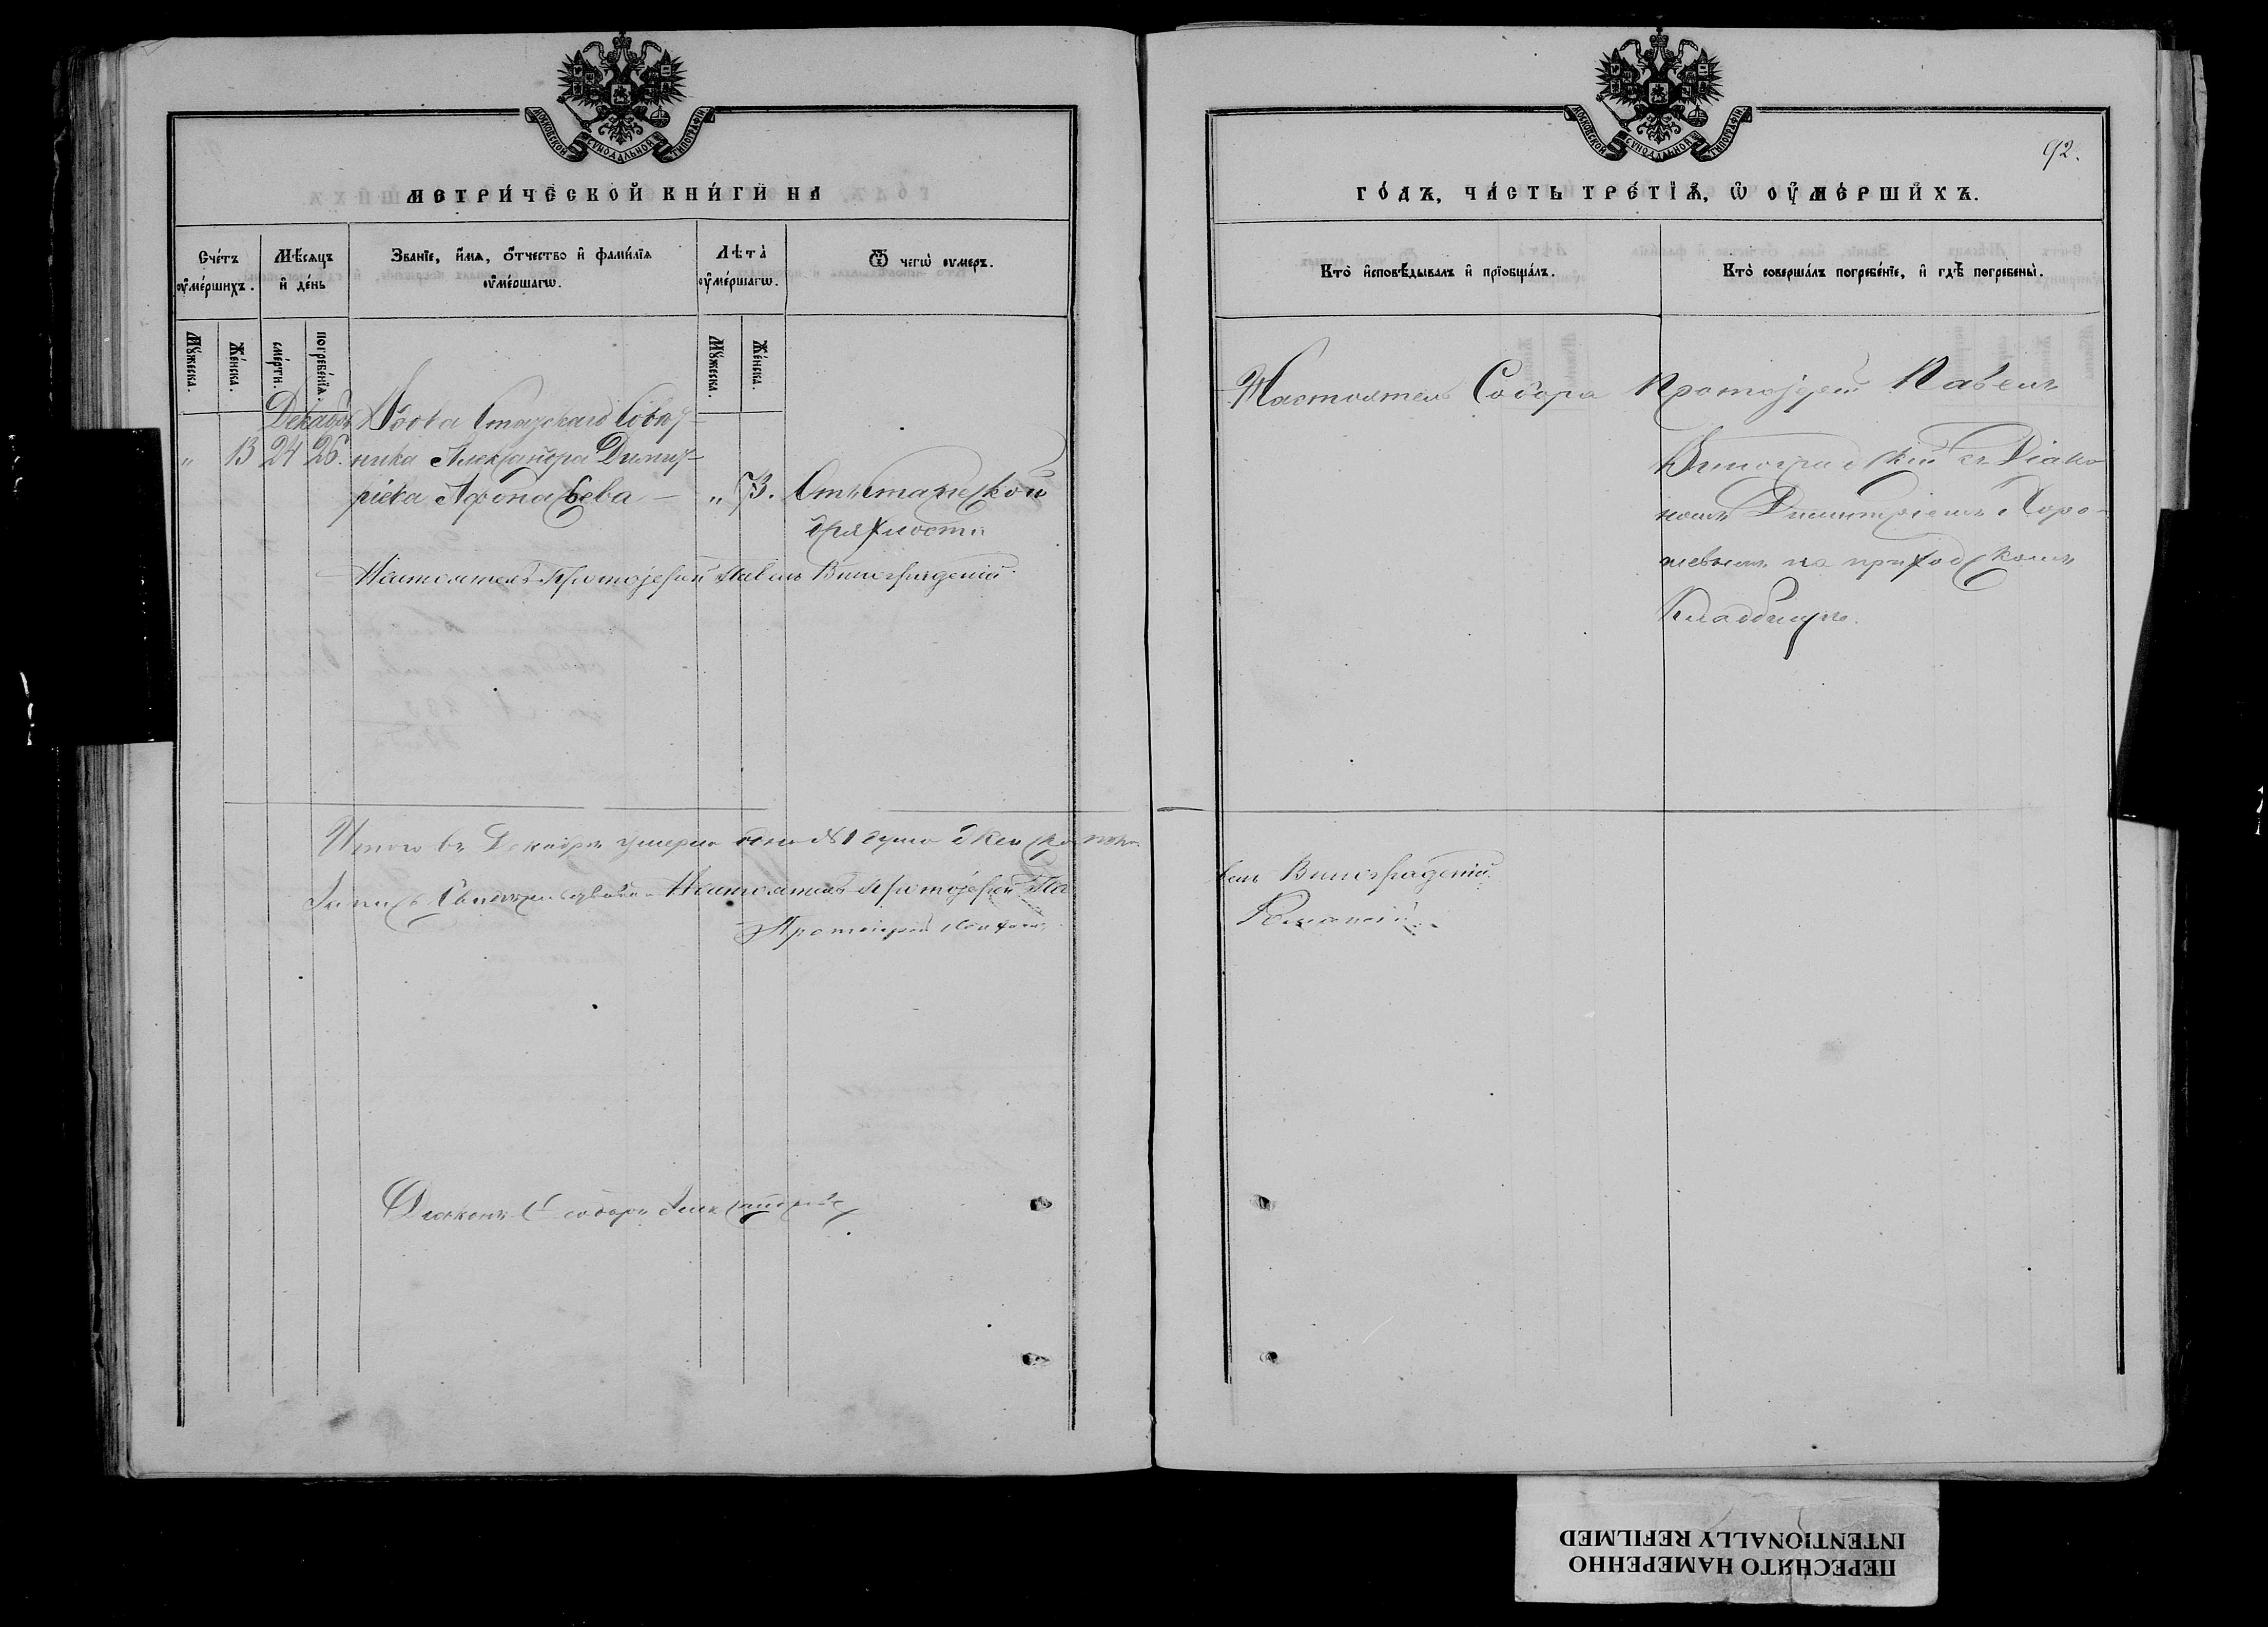 МОСКОВСКОЙ СѴНОДАЛЬНОЙ ТИПОГРАФІИ
МЕТРИ́ЧЕСКОЙ КНИ́ГИ НА
Сче́тъ ᲂу҆ме́ршихъ.
Мѣ́сяцъ и҆ де́нь
Зва́нїе, и҆́мѧ, ѻ҆́тчество и҆ фами́лїѧ ᲂу҆ме́ршагѡ.
Лѣта̀ ᲂу҆ме́ршагѡ.
Ѿ чегѡ̀ ᲂу҆меръ.
Мꙋ́жеска.
Же́нска.
сме́рти.
погребе́нїѧ.
Мꙋ́жеска.
Же́нска.
Декабр
Вдова Статскаго Совѣт-
„ 13 24 26. ника Александра Димит-
ріева Афонасьева — „ 73. Отъ старческой
дряхлости
Настоятель Протоіерей Павелъ Виноградскій.
Итого въ Декабрѣ умерло одна №1 душа женска пола.
Настоятель Протоіерей Па
Протоіерей
Діаконъ
МОСКОВСКОЙ СѴНОДАЛЬНОЙ ТИПОГРАФІИ
92.
ГО́ДЪ, ЧА́СТЬ ТРЕ́ТЇѦ, Ѡ ОУ҆МЕ́РШИХЪ.
Кто̀ и҆сповѣ́дывалъ и҆ прїобща́лъ.
Кто̀ соверша́лъ погребе́нїе, и҆ гдѣ̀ погребены̀.
Настоятель Собора Протоіерей Павелъ
Виноградскій съ Діако
номъ Димитріемъ Хоро-
шевымъ на приходскомъ
Кладбищѣ.
велъ Виноградскій
ПЕРЕСНЯТО НАМЕРЕННО
INTENTIONALLY REFILMED